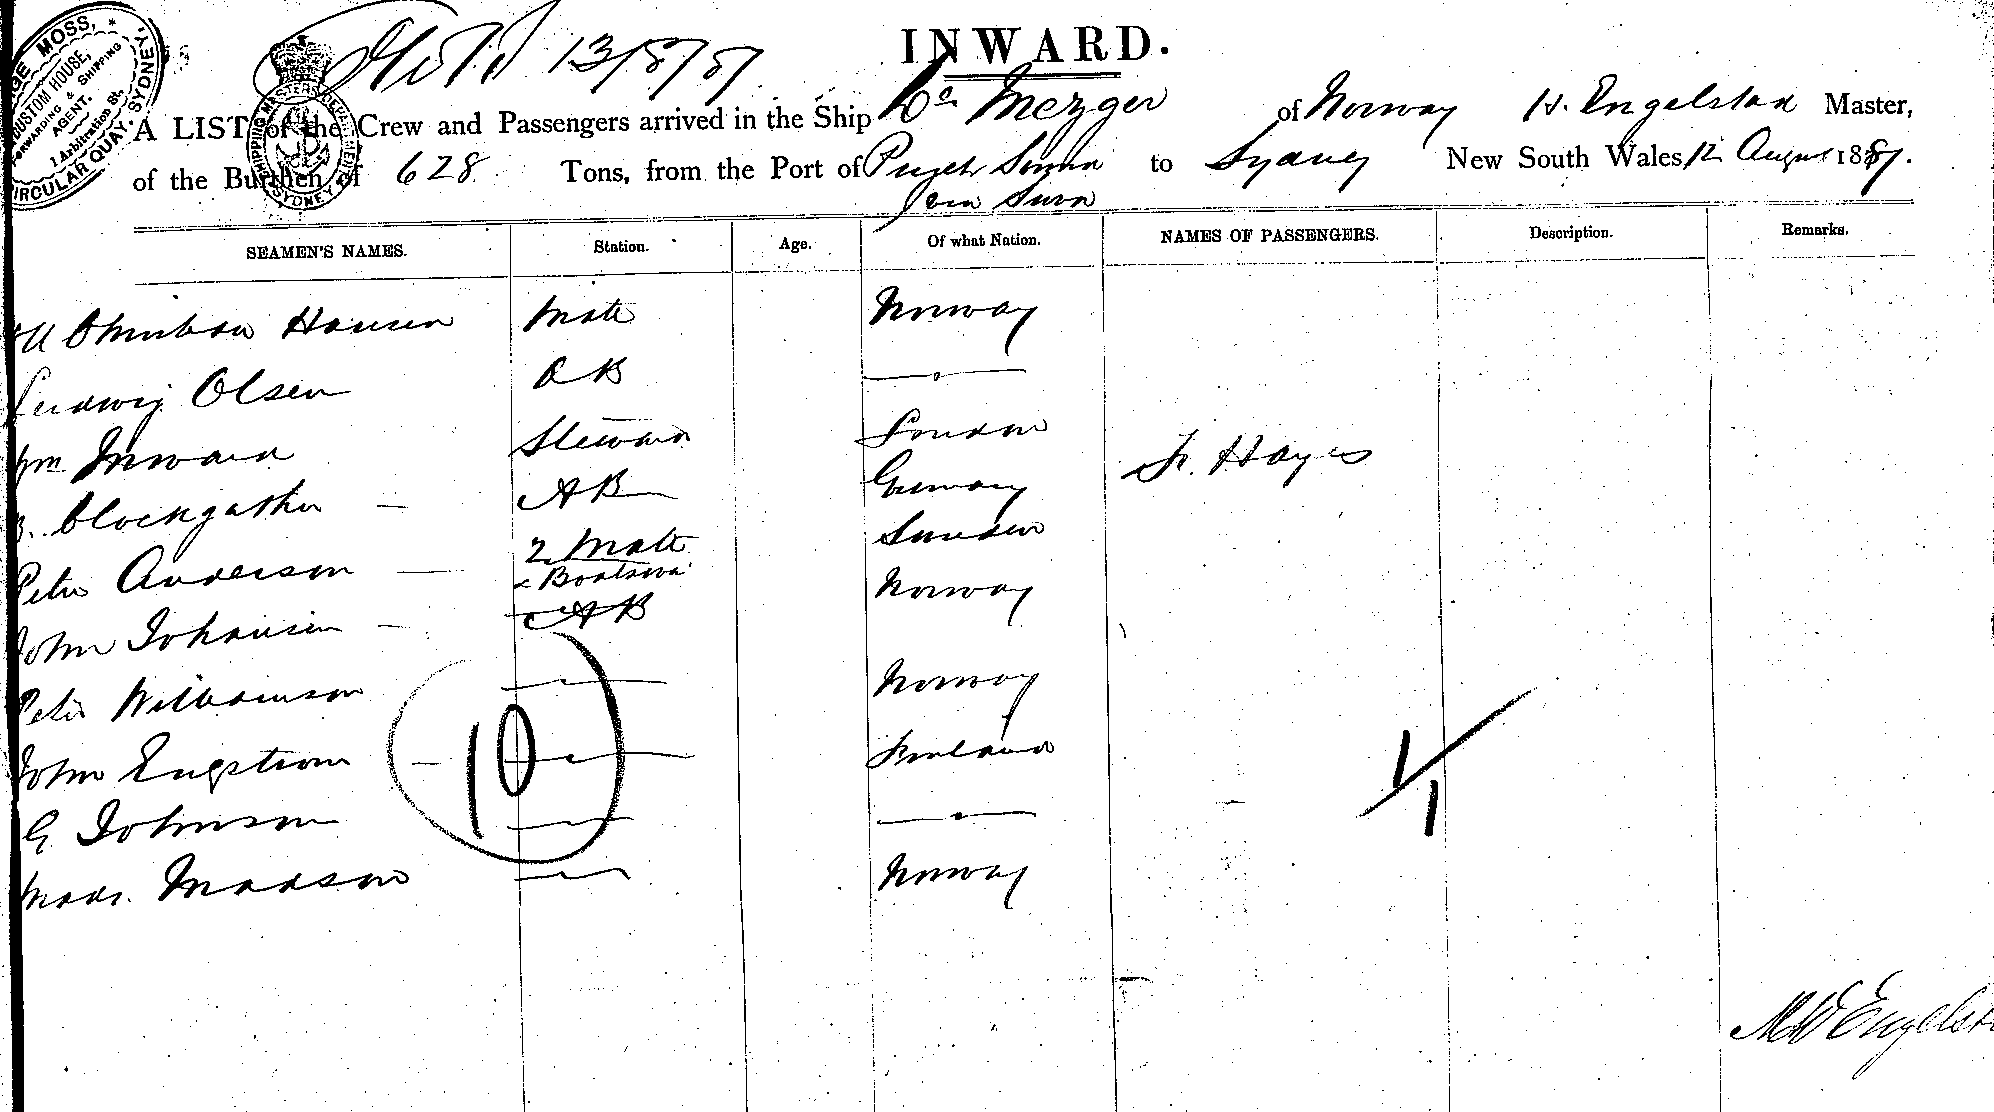 INWARD.
13/8/87
A LIST of the Crew and Passengers arrived in the Ship Mezger of Norway H. Engelstad Master,
of the Burthen of 628 Tons, from the Port of Puget Sound to Sydney New South Wales 12 August 1887.
via Suva
SEAMEN'S NAMES. Station. Age. Of what Nation. NAMES OF PASSENGERS. Description. Remarks.
Hansen Mate Norway
Ludwig Olsen AB
Wm Inward Steward London
Fr. Hayes
AB Germany
Peter Anderson 2 Mate Sweden
& Boatswn
John Johansen AB Norway
Peter Williamson Norway
John Engstrom Finland
G Johnson
Mads. Madson Norway
10
1/1
SHIPPING MASTERS DEPARTMENT SYDNEY
MOSS,
CUSTOM HOUSE,
FORWARDING & SHIPPING
AGENT.
1 Arbitration St.
CIRCULAR QUAY, SYDNEY.